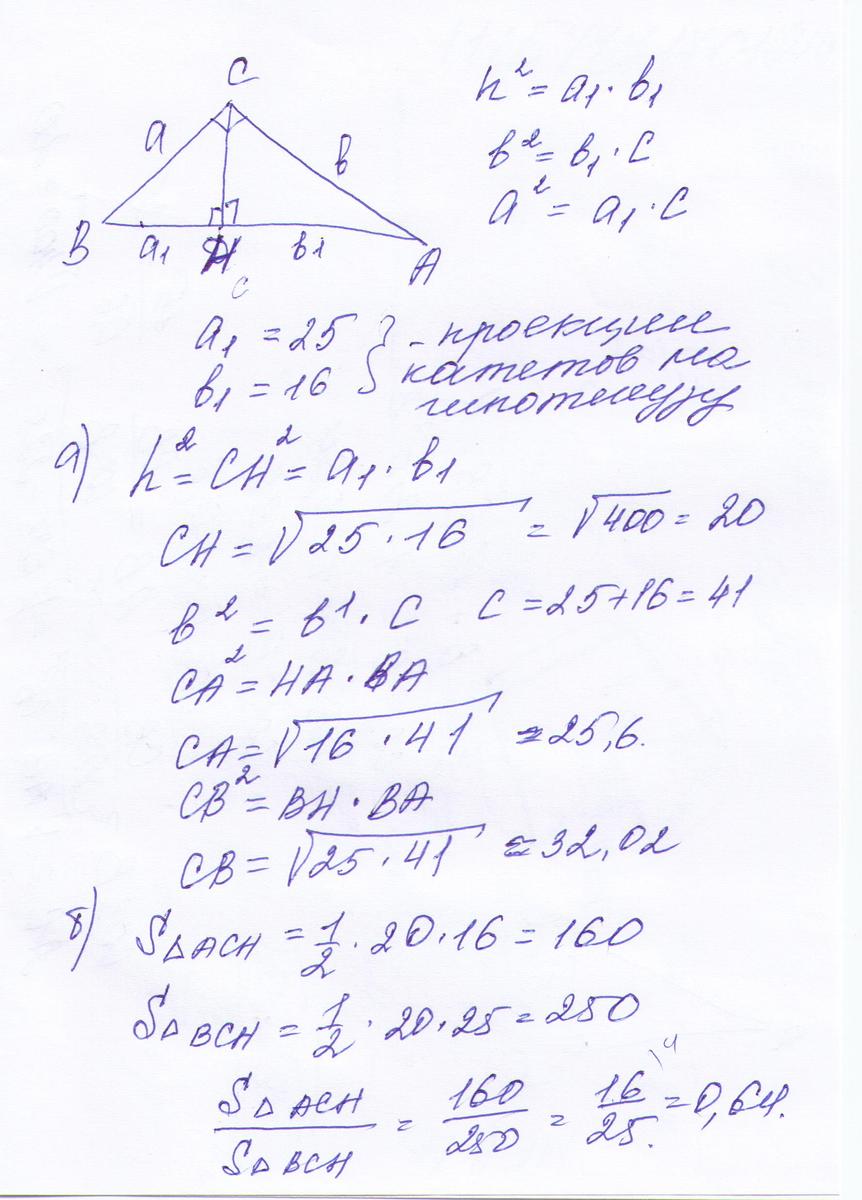 C
a
b
B
a₁
H
b₁
A
c
h² = a₁ · b₁
b² = b₁ · C
a² = a₁ · C
a₁ = 25 } - проекции
b₁ = 16 катетов на
гипотенузу
а) h² = CH² = a₁ · b₁
CH = √25 · 16 = √400 = 20
b² = b¹ · C C = 25+16 = 41
CA² = HA · BA
CA = √16 · 41 ≈ 25,6.
CB² = BH · BA
CB = √25 · 41 ≈ 32,02
б) S△ACH = 1/2 · 20 · 16 = 160
S△BCH = 1/2 · 20 · 25 = 250
S△ACH / S△BCH = 160/250 = 16/25 = 0,64.